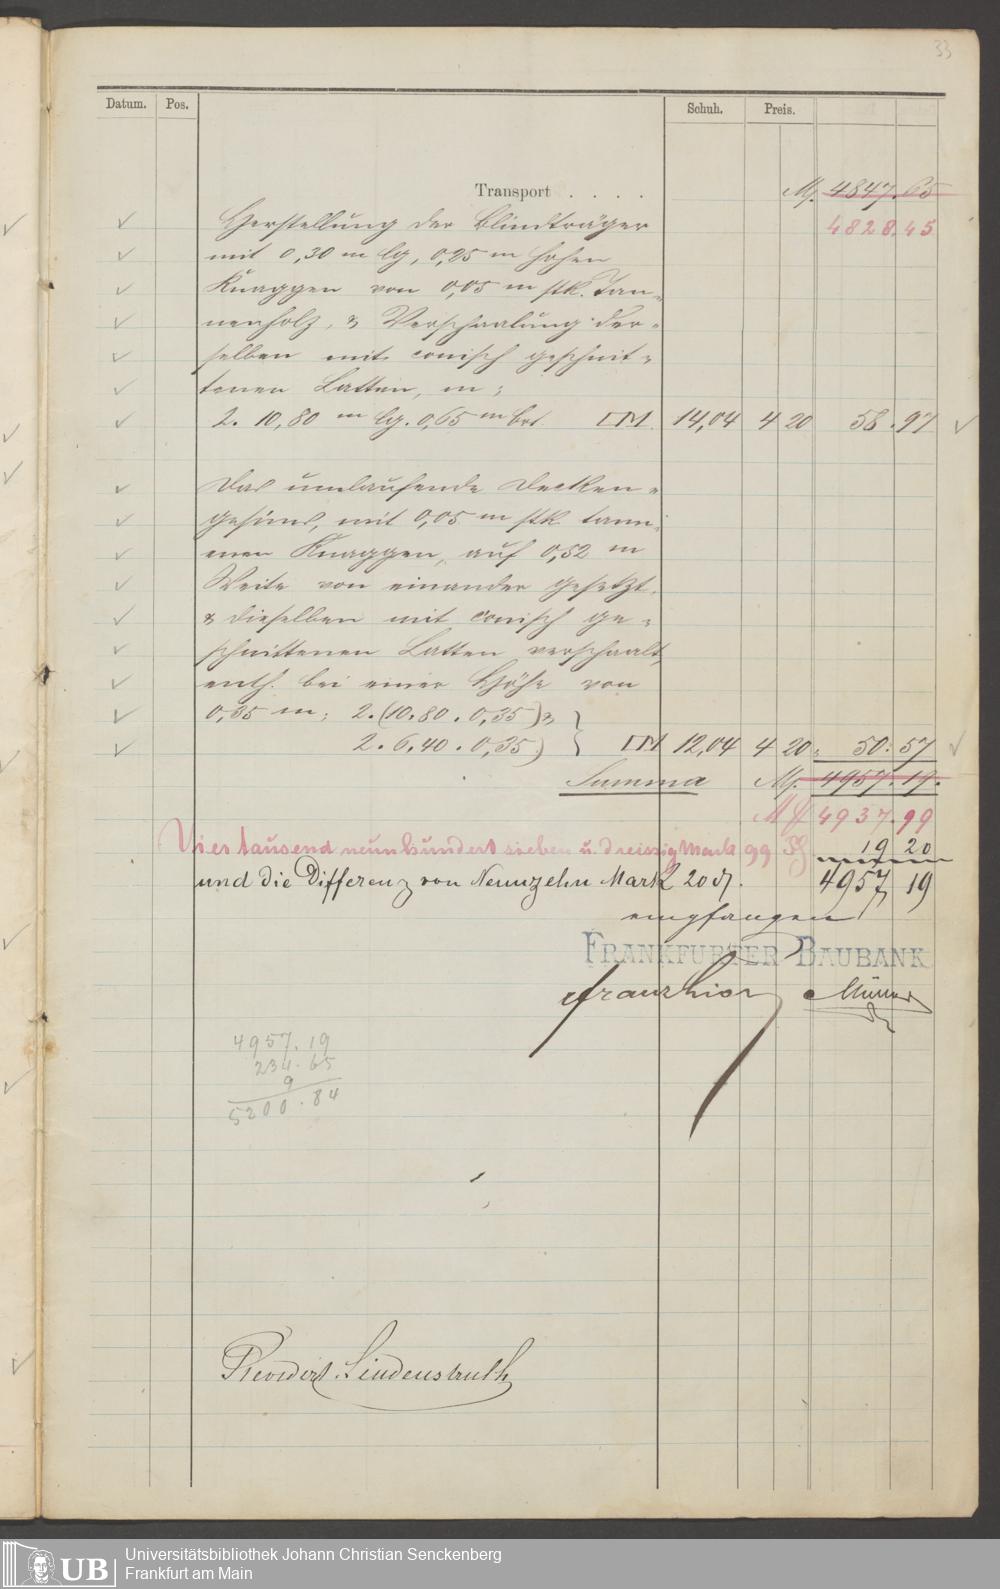 33
Datum. Pos. Schuh. Preis.
Transport . . . . M. 4847.65
4828.45
Herstellung der Blindträger
mit 0,30 m lg, 0,25 m hohen
Knaggen von 0,05 m stk. Tan-
nenholz, & Verschaalung der-
selben mit conisch geschnit-
tenen Latten, m:
2. 10,80 m lg. 0,65 m brt. □M. 14,04 4 20 58.97
Das umlaufende Decken-
gesims, mit 0,05 m stk. tann-
enen Knaggen, auf 0,52 m
Weite von einander gesetzt,
& dieselben mit conisch ge-
schnittenen Latten verschaalt,
enth. bei einer Höhe von
0,35 m; 2.(10.80.0,35) &
2.6,40.0,35.) □M 12,04 4 20 50.57
Summa M. 4957.19.
M 4937.99
Viertausend neunhundert sieben u. dreissig Mark 99 19 20
und die Differenz von Neunzehn Mark 20 4957 19
empfangen
FRANKFURTER BAUBANK
Müller
4957.19
234.65
9
5200.84
Revidirt Lindenstruth
UB
Universitätsbibliothek Johann Christian Senckenberg
Frankfurt am Main